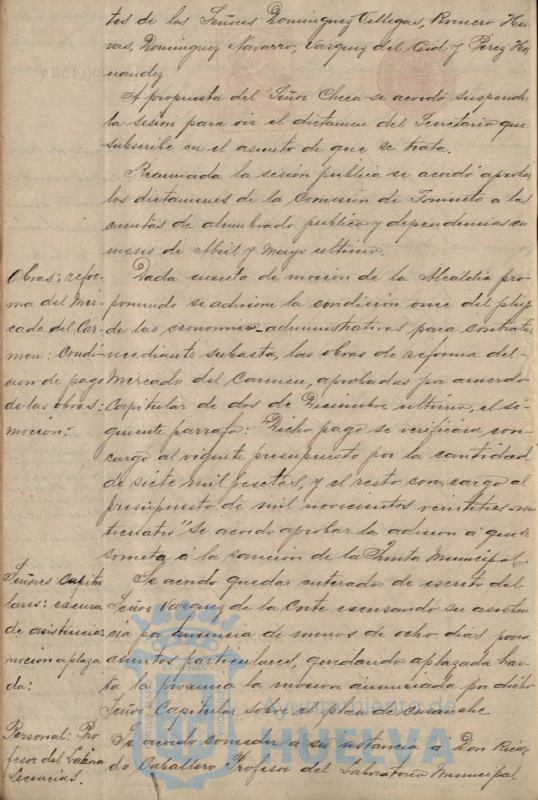 tos de los Señores Dominguez Villegas, Romero Her-
vas, Dominguez Navarro, Vazquez del Cid y Perez Her-
nandez
A propuesta del Señor Checa se acordó suspender
la sesión para oir el dictamen del Secretario que
subscribe en el asunto de que se trata.
Reanudada la sesión publica se acordó aprobar
los dictamenes de la Comision de Fomento a las
cuentas de alumbrado publico y dependencias en
meses de Abril y Mayo ultimo.
Obras: refor-
ma del Mer-
cado del Car-
men: Condi-
cion de pago
de las obras:
moción:
Dada cuenta de moción de la Alcaldia pro-
poniendo se adicione la condición once del pliego
de las economico-administrativas para contratar
mediante subasta, las obras de reforma del
Mercado del Carmen, aprobadas por acuerdo
Capitular de dos de Diciembre ultimo, el si-
guiente parrafo: "Dicho pago se verificará con
cargo al vigente presupuesto por la cantidad
de siete mil pesetas, y el resto con cargo al
presupuesto de mil novecientos veintitres-vein
ticuatro" Se acordó aprobar la adicion á que se
someta á la sanción de la Junta Municipal.
Señores Capitu
lares: excusa
de asistencia:
moción aplaza
da:
Se acordó quedar enterados de escrito del
Señor Vazquez de la Corte excusando su asisten
cia por ausencia de menos de ocho dias para
asuntos particulares, quedando aplazada has-
ta la proxima la moción anunciada por dicho
Señor Capitular sobre el plan de ensanche.
Personal: Pro
fesor del Labora
Licencias.
Se acordó conceder a su instancia á Don Ricar
do Caballero Profesor del Laboratorio Municipal
Ayuntamiento de
HUELVA